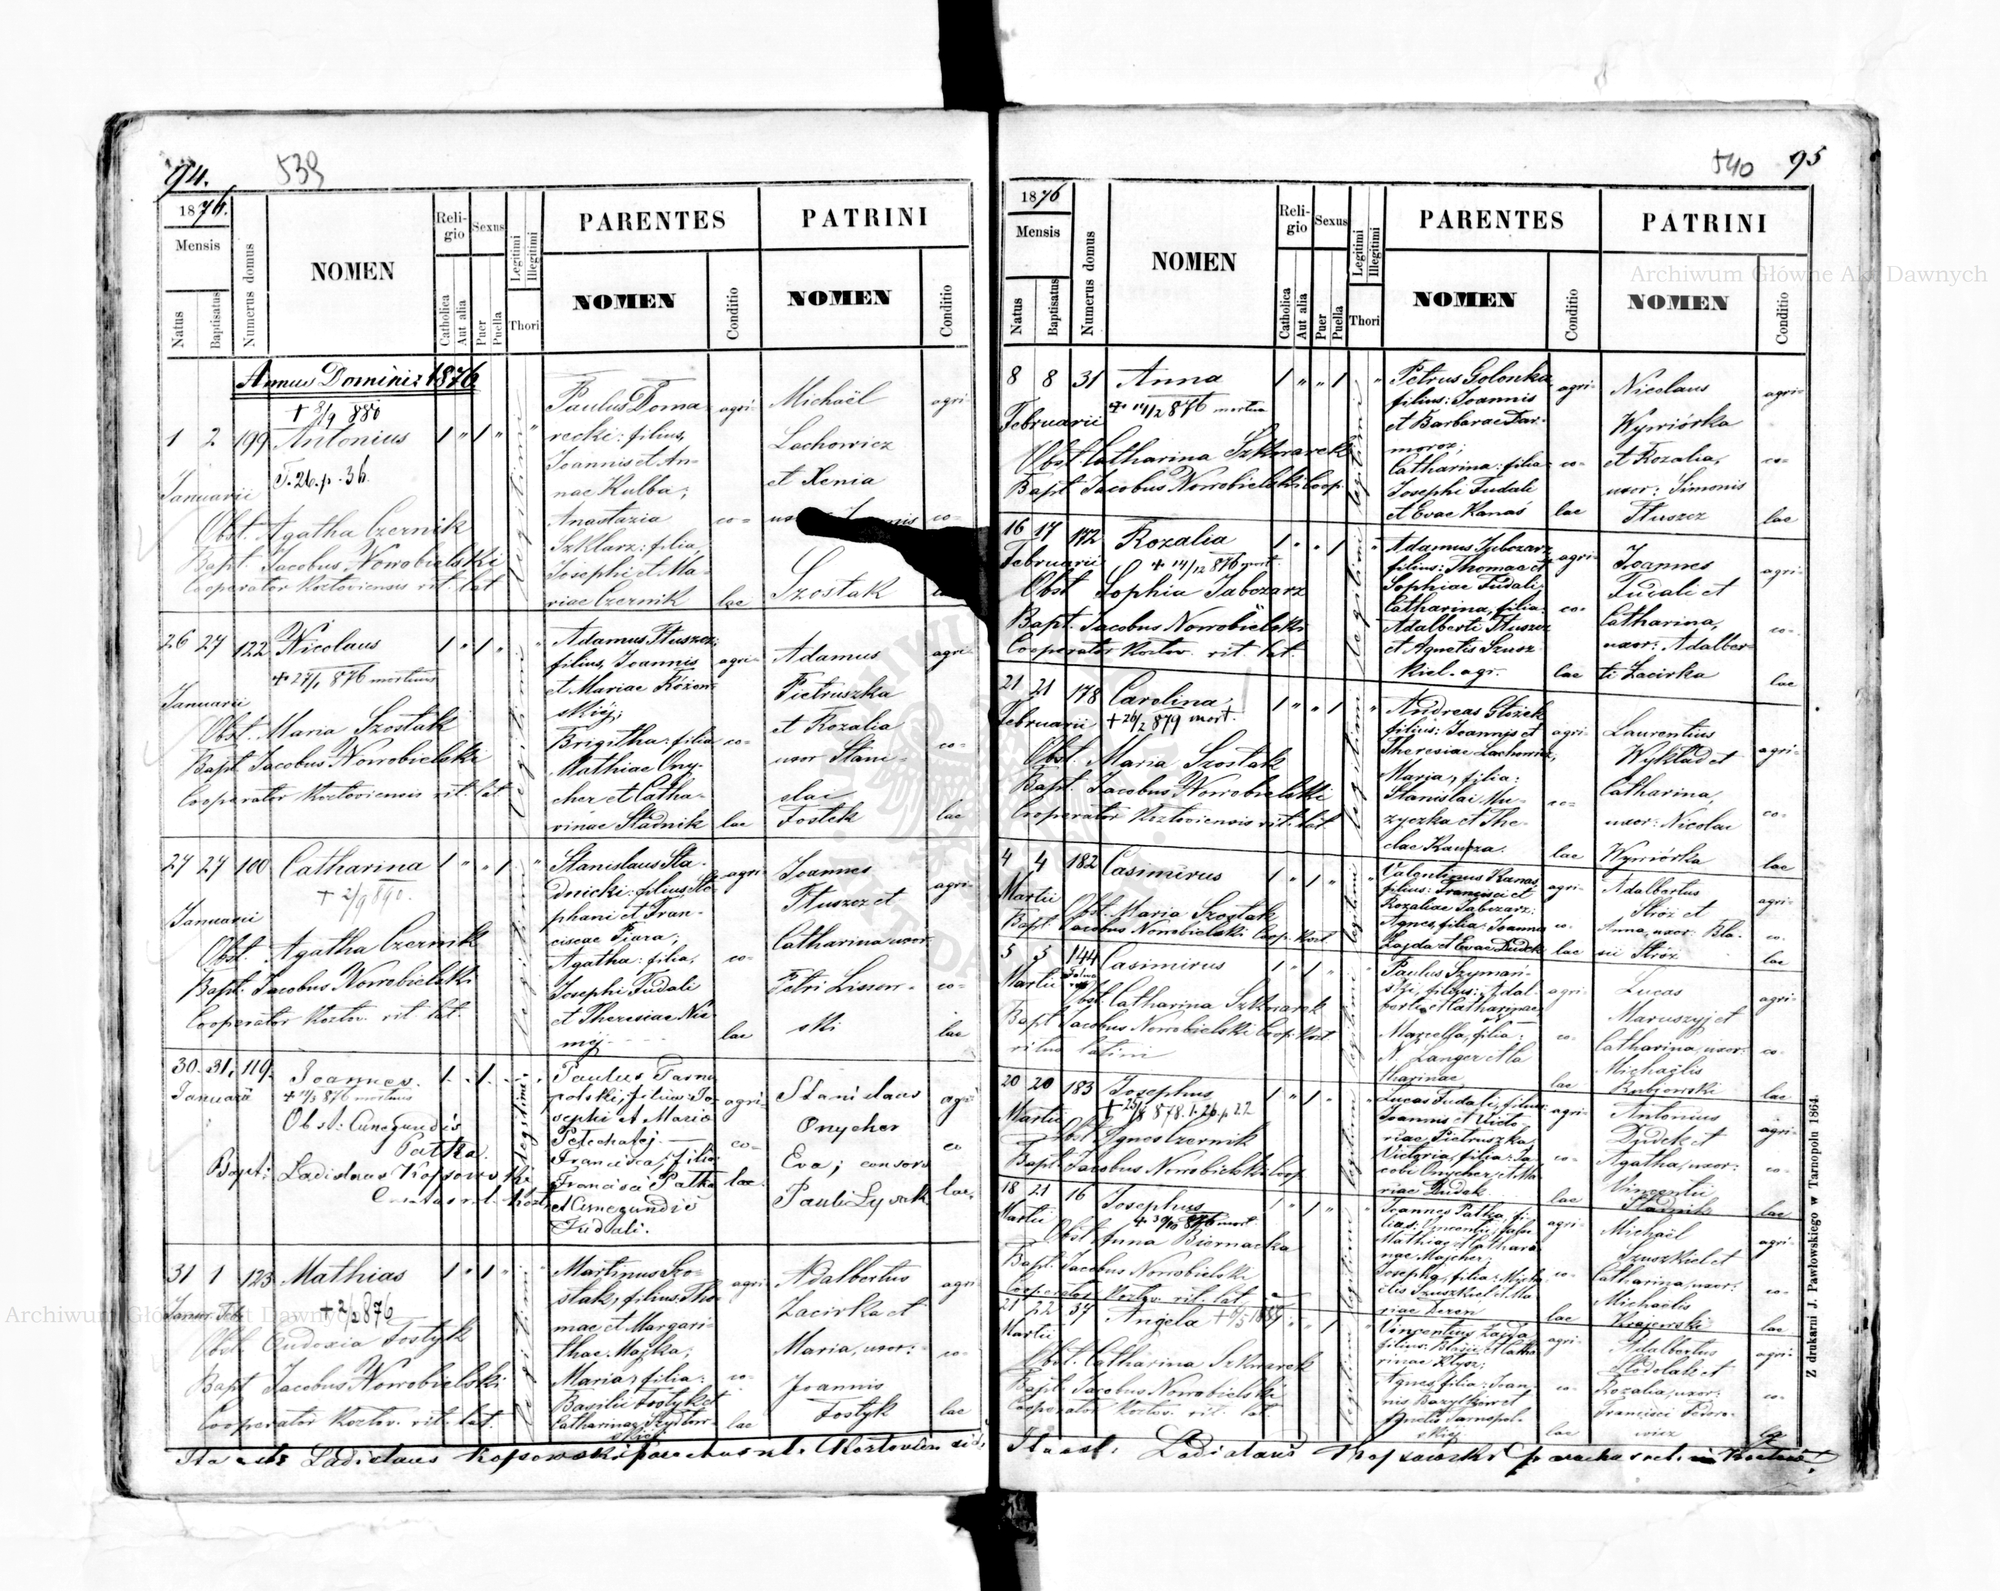 94.
539
1876.
Mensis
Natus
Baptisatus
Numerus domus
NOMEN
Reli-
gio
Catholica
Aut alia
Sexus
Puer
Puella
Legitimi
Illegitimi
Thori
PARENTES
NOMEN
Conditio
PATRINI
NOMEN
Conditio
Annus Domini: 1876
1 2 199
Januarii
Antonius
T. 26. p. 36.
Obst. Agatha Czernik
Bapt. Jacobus Nowobielski
Cooperator Kozloviensis rit. lat.
Paulus Doma
recki: filius,
Joannis et An-
nae Kulba;
Anastazia
Szklarz: filia,
Josephi et Ma-
riae Czernik
agri-
co-
lae
Michaël
Lachowicz
et Xenia
Szostak
agri-
co-
26 27 122
Januarii
Nicolaus
+ 27/1 876 mortuus
Obst. Maria Szostak
Bapt. Jacobus Nowobielski
Cooperator Kozloviensis rit. lat.
Adamus Tłuszcz:
filius, Joannis
et Mariae
Brigitha: filia
Mathiae Ony-
cher et Catha-
rinae Stadnik
agri-
co-
lae
Adamus
Pietruszka
et Rozalia
uxor Stani-
slai
Fostek
agri-
co-
lae
27 27 100
Januarii
Catharina
+ 2/9 890.
Obst. Agatha Czernik
Bapt. Jacobus Nowobielski
Cooperator Kozlov. rit. lat.
Stanislaus Sta-
dnicki: filius Ste-
phani et Fran-
ciscae Piara;
Agatha: filia,
Josephi Fudali
et Theresiae Nie-
mej
agri-
co-
lae
Joannes
Tłuszcz et
Catharina uxor
Petri Lissow-
ski
agri-
co-
lae
30. 31. 119.
Januarii
Joannes.
mortuus
Obst: Cunegundis
Patka.
Bapt: Ladislaus Kopsowski
Paulus Tarno
polski, filius: Jo-
sephi et Maria
Francisca; filia:
Francisci Patka
et Cunegundis
Fudali.
agri-
co-
lae.
Stanislaus
Onycher
Eva; consors
Pauli Lysak
agri
co
lae.
31 1 123
Januar. Feb.
Mathias
+ 2/2 876
Obst. Eudoxia Fostyk
Bapt. Jacobus Nowobielski
Cooperator Kozlov. rit. lat.
Martinus Szo-
stak, filius: Tho-
mae et Margari-
thae Majka;
Maria, filia:
Basilii Fostyk et
Catharinae Szydłow-
skiej
agri-
co-
lae
Adalbertus
Zacirka et
Maria, uxor:
Joannis
Fostyk
agri-
co-
lae
Ita est: Ladislaus Kopsowski parochus r. l.
540
95
1876
Mensis
Natus
Baptisatus
Numerus domus
NOMEN
Reli-
gio
Catholica
Aut alia
Sexus
Puer
Puella
Legitimi
Illegitimi
Thori
PARENTES
NOMEN
Conditio
PATRINI
NOMEN
Conditio
8 8 31
Februarii
Anna
+ 14/2 876 mortua
Obst. Catharina Szkwarek
Bapt. Jacobus Nowobielski Coop.
Petrus Golonka
filius: Joannis
et Barbarae Dar-
moroz;
Catharina: filia
Josephi Fudali
et Evae Kanaś
agri-
co-
lae
Nicolaus
Wywiórka
et Rozalia,
uxor: Simonis
Tłuszcz
agri-
co-
lae
16 17 172
Februarii
Rozalia
+ 14/12 876 mort.
Obst. Sophia Jabczarz
Bapt. Jacobus Nowobielski
Cooperator Kozlov. rit. lat.
Adamus Jabczarz
filius: Thomae et
Sophiae Fudali;
Catharina, filia:
Adalberti Tłuszcz
et Agnetis Szusz
kiel. agr.
agri-
co-
lae
Joannes
Fudali et
Catharina,
uxor: Adalber-
ti Zacirka
agri-
co-.
lae
21 21 178
Februarii
Carolina,
+ 26/2 879 mort.
Obst. Maria Szostak
Bapt. Jacobus Nowobielski
Cooperator Kozloviensis rit. lat.
Andreas Stożek
filius: Joannis et
Theresiae Lachowicz,
Maria, filia:
Stanislai Mu-
zyczka et The-
clae
agri-
co-
lae
Laurentius
Wykład et
Catharina,
uxor: Nicolai
Wywiórka
agri-
co-
lae
4 4 182
Martii
Casimirus
Obst. Maria Szostak
Bapt. Jacobus Nowobielski Coop. Kozl.
Valentinus Kanaś
filius: Francisci et
Rozaliae Jabczarz;
Agnes, filia: Joannis
Zajda et Evae Dudek
agri-
co-
lae
Adalbertus
Stróż et
Anna, uxor: Bla-
sii Stróż
agri-
co-
lae
5 5 144
Martii
Casimirus
Obst. Catharina Szkwarek
Bapt. Jacobus Nowobielski Coop. Kozl.
ritus latini
Paulus Szyman-
ski, filius: Adal-
berti et Catharinae
Marcella, filia:
N. Langer et Ca
tharinae
agri-
co-
lae
Lucas
Maruszyj et
Catharina, uxor:
Michaëlis
agri-
co-
lae
20 20 183
Martii
Josephus
Obst. Agnes Czernik
Bapt. Jacobus Nowobielski Coop.
Lucas Fudali, filius:
Joannis et Victo-
riae Pietruszka,
Victoria, filia: Ja-
cobi Onycher, et Ma-
riae Dudek
agri-
co-
lae
Antonius
Dudek et
Agatha, uxor:
Vincentii
Stadnik
agri-
co-
lae
18 21 16
Martii
Josephus
Obst. Anna Biernacka
Bapt. Jacobus Nowobielski
Cooperator Kozlov. rit. lat.
Joannes Patka, fi-
lius: Vincentii,
Mathiae et Cathari-
nae Majcher;
Josepha, filia: Micha-
ëlis Szuszkiel et Ma-
riae Deren
agri-
co-
lae
Michaël
Szuszkiel et
Catharina, uxor:
Michaëlis
Krajewski
agri-
co-
lae
21 22 37
Martii
Angela
Obst. Catharina Szkwarek
Bapt. Jacobus Nowobielski
Cooperator Kozlov. rit. lat.
Vincentius Zajda
filius: Blasii et Catha-
rinae Klysz;
Agnes, filia: Joan-
nis
Agnetis Tarnopol-
skiej
agri-
co-
lae
Adalbertus
Stodolak et
Rozalia, uxor:
Francisci Fedoro-
wicz
agri-
co-
Ita est: Ladislaus Kopsowski parochus r. l.
Z drukarni J. Pawłowskiego w Tarnopolu 1864.
Archiwum Główne Akt Dawnych
Archiwum Główne Akt Dawnych